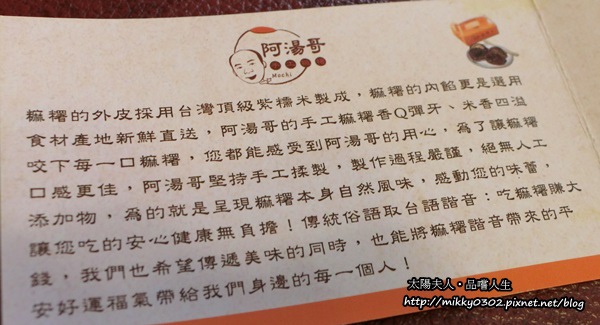 阿湯哥
手工麻糬
Mochi
麻糬的外皮採用台灣頂級紫糯米製成，麻糬的內餡更是選用
食材產地新鮮直送，阿湯哥的手工麻糬香Q彈牙、米香四溢
咬下每一口麻糬，您都能感受到阿湯哥的用心，為了讓麻糬
口感更佳，阿湯哥堅持手工揉製，製作過程嚴謹，絕無人工
添加物，為的就是呈現麻糬本身自然風味，感動您的味蕾，
讓您吃的安心健康無負擔！傳統俗語取台語諧音：吃麻糬賺大
錢，我們也希望傳遞美味的同時，也能將麻糬諧音帶來的平
安好運福氣帶給我們身邊的每一個人！
太陽夫人・品嚐人生
http://mikky0302.pixnet.net/blog